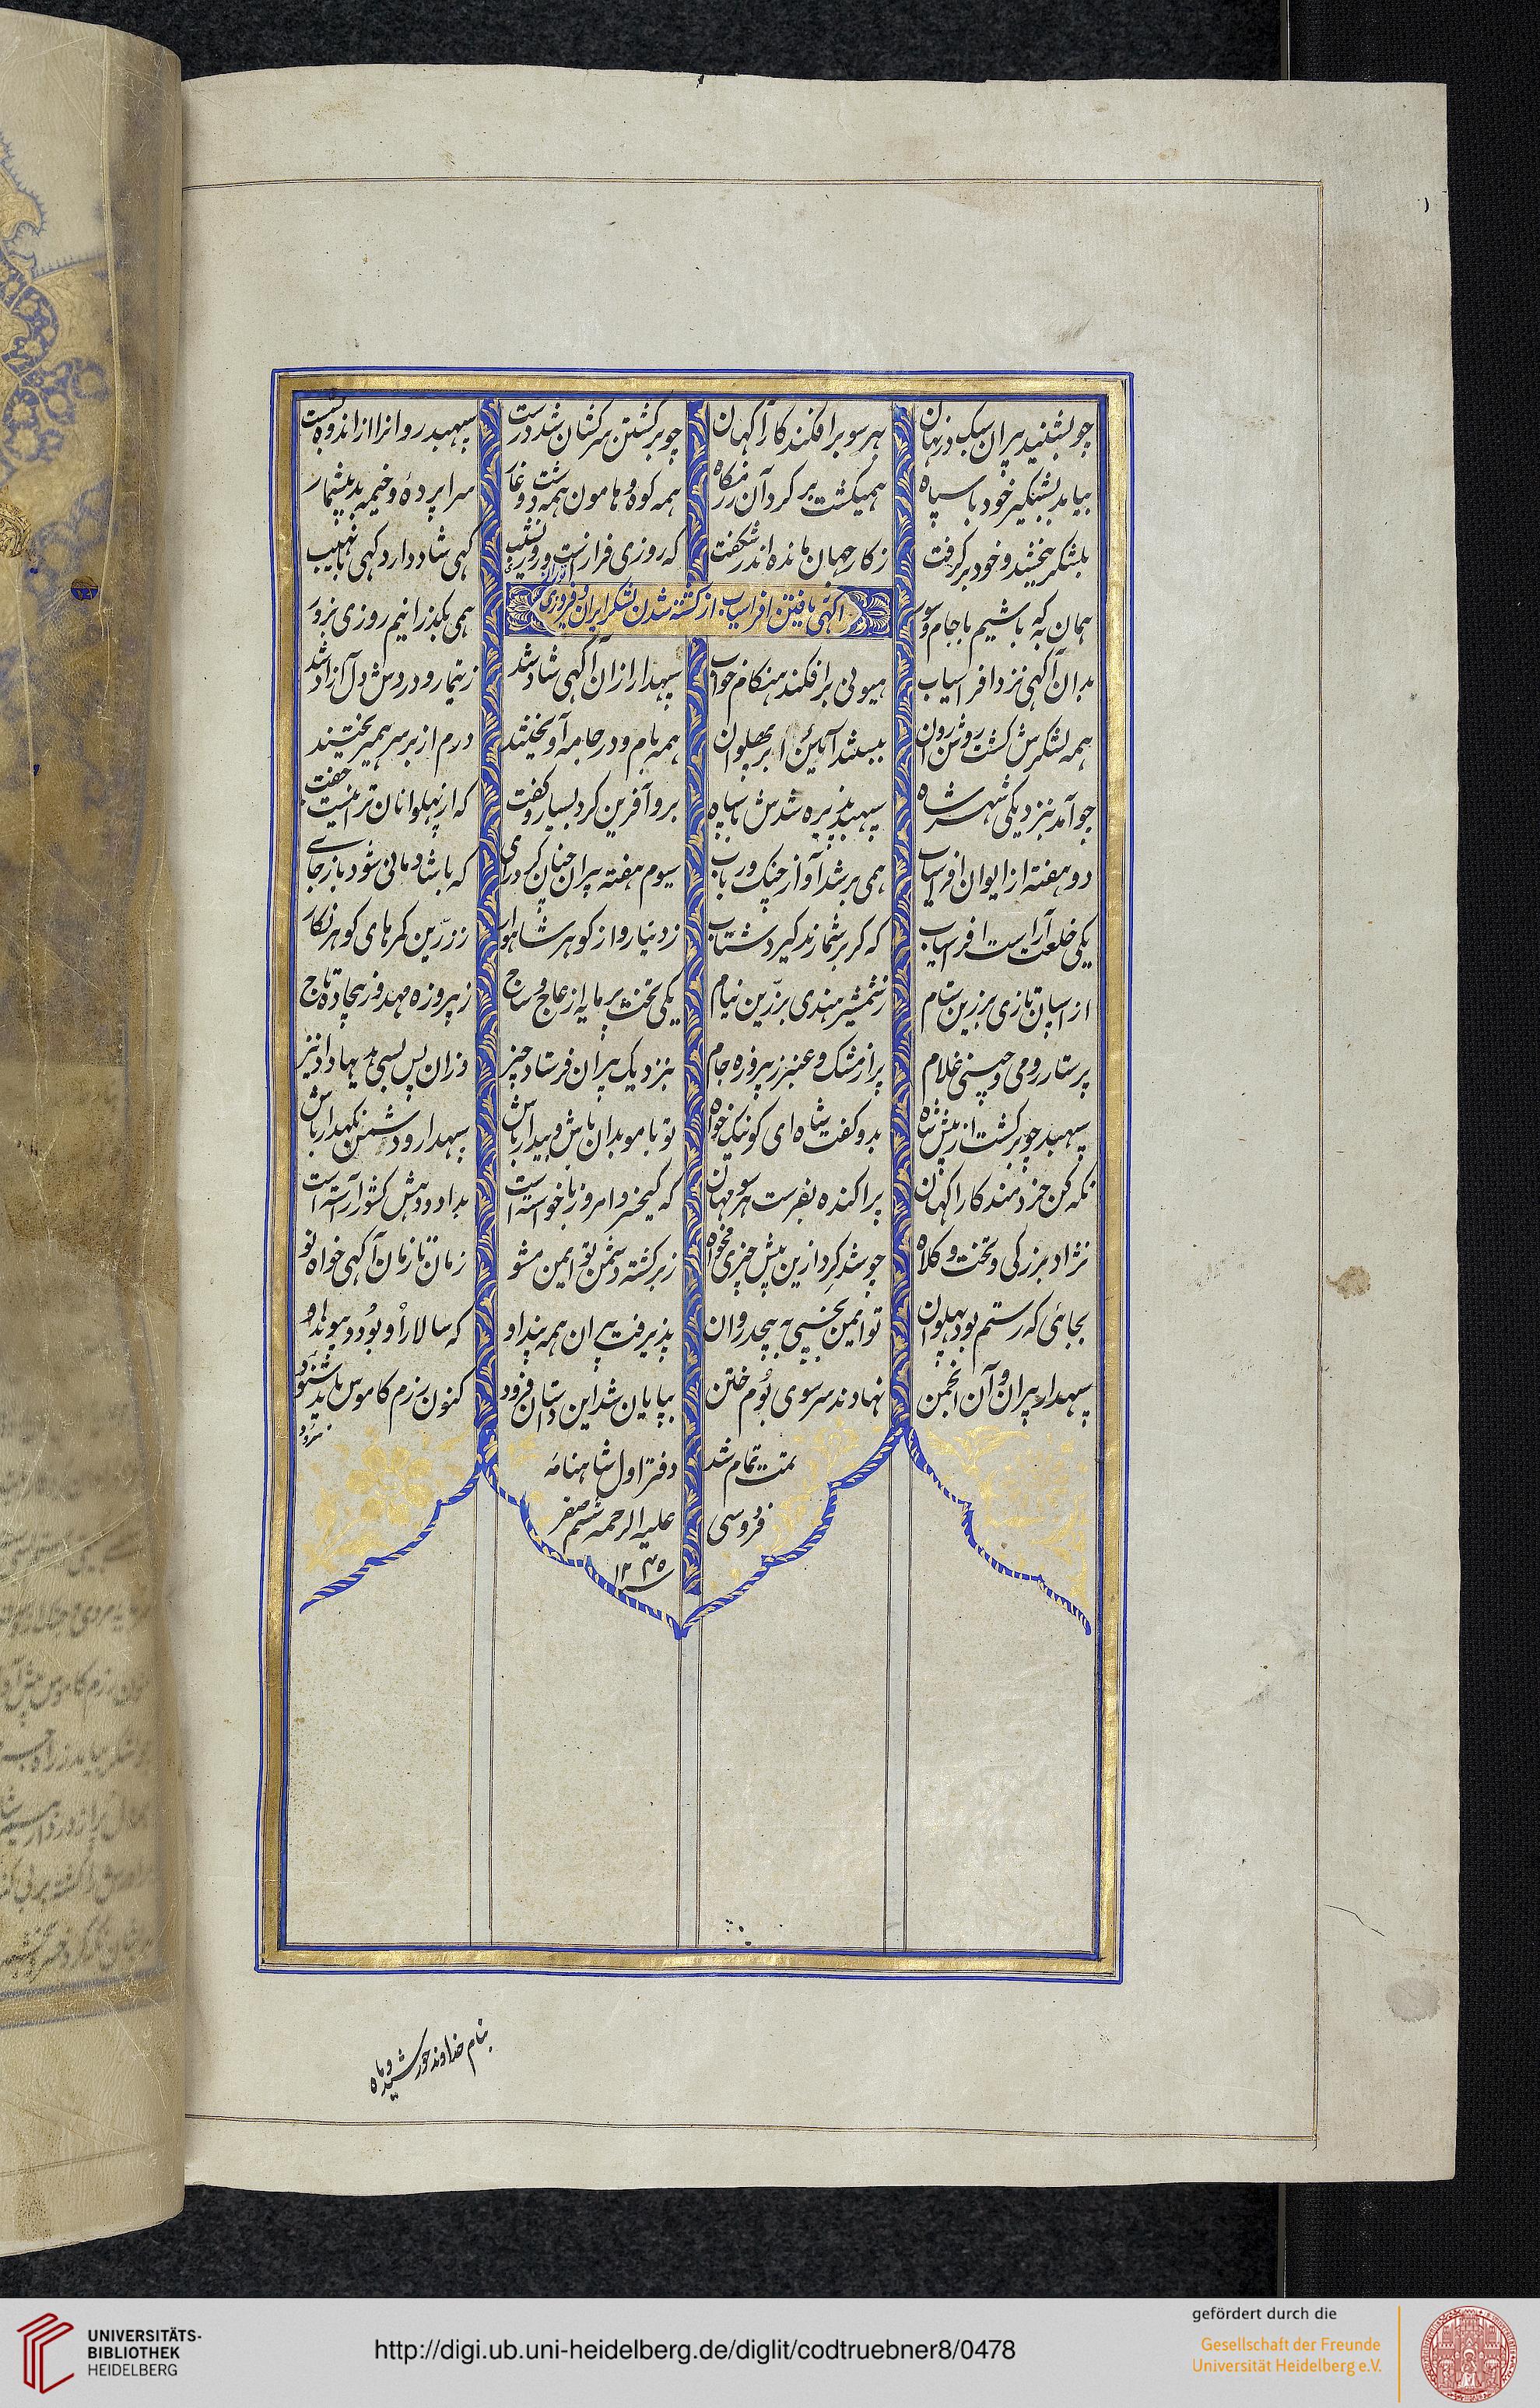 چو بشنید پیران سبک در نهان بهر سو برافکند کارآگهان چو برگشتن سرکشان شد درست سپهبد روانرا از اندوه بشست
بیامد بشبگیر خود با سپاه همیگشت بر گرد آن رزمگاه همه کوه و هامون همه دشت و غار سراپرده و خیمه بد بیشمار
بلشکر ببخشید و خود برگرفت ز کار جهان مانده اندر شگفت که روزی فرازست و روزی نشیب گهی شاد دارد گهی با نهیب
همان به که باشیم با جام و سور همی بگذرانیم روزی بزور
آگهی یافتن افراسیاب از کشته شدن لشکر ایران و فیروزی تورانیان
بدان آگهی نزد افراسیاب هیونی برافکند هنگام خواب سپهدار ازان آگهی شاد شد ز تیمار و درد دلش آزاد شد
همه لشکرش گشت روشن روان ببستند آئین ابر پهلوان همه بام و در جامه آویختند درم از بر سر همیریختند
چو آمد بنزدیکی شهر شاه سپهبد پذیره شدش با سپاه برو آفرین کرد بسیار و گفت که از پهلوانان ترا نیست جفت
دو هفته از ایوان افراسیاب همی بر شد آواز چنگ و رباب سیوم هفته پیران چنان کرد رای که با شادمانی شود باز جای
یکی خلعت آراست افراسیاب که گر بر شمارند گیرد شتاب ز دینار و از گوهر شاهوار ز زرین کمرهای گوهر نگار
از اسپان تازی بزرین ستام ز شمشیر هندی بزرین نیام یکی تخت پرمایه از عاج و ساج ز پیروزه مهد و ز بیجاده تاج
پرستار رومی و چینی غلام پر از مشک و عنبر ز پیروزه جام بنزدیک پیران فرستاد چیز وزان پس بسی هدیها داد نیز
سپهبد چو برگشت از پیش شاه بدو گفت شاه ای گو نیکخواه تو با موبدان باش و بیدار باش سپهدار و دشمن نگهدار باش
نگه کن خردمند کارآگهان پراکنده بفرست هر سو مهان که کیخسرو امروز با خواسته است بداد و دهش کشور آراسته است
نژاد و بزرگی و تخت و کلاه چو شد گرد ازین بیش چیزی مخواه ز برگشته دشمن تو ایمن مشو زمان تا زمان آگهی خواه نو
بجائی که رستم بود پهلوان تو ایمن بخسپی بپیچد روان پذیرفت پیران همه پند او که سالار او بود و پیوند او
سپهدار پیران و آن انجمن نهادند سر سوی بوم ختن بپایان شد این داستان فرود کنون رزم کاموس باید شنود
تمت تمام شد دفتر اول شاهنامه
فردوسی علیه الرحمه ششم صفر
سنه ۱۲۴۵
بنام خداوند خورشید و ماه
UNIVERSITÄTS-
BIBLIOTHEK
HEIDELBERG
http://digi.ub.uni-heidelberg.de/diglit/codtruebner8/0478
gefördert durch die
Gesellschaft der Freunde
Universität Heidelberg e.V.